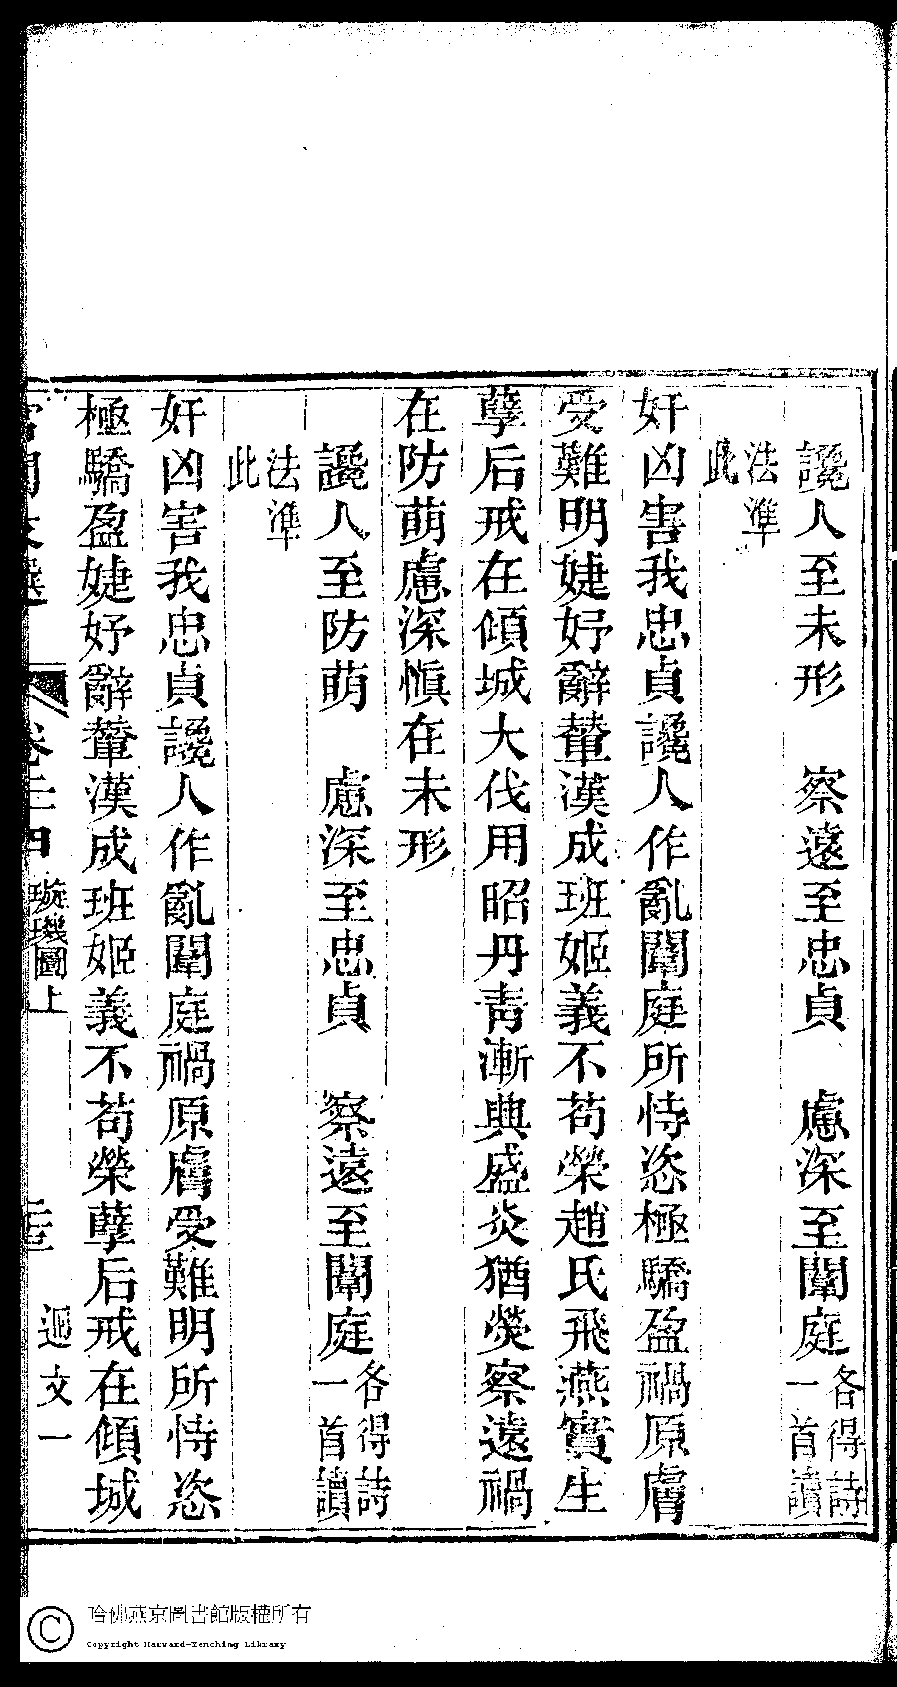 讒人至未形　察遠至忠貞　慮深至闈庭各得詩一首讀
法準此
奸凶害我忠貞讒人作亂闈庭所恃恣極驕盈禍原膚
受難明婕妤辭輦漢成班姬義不苟榮趙氏飛燕實生
孽后戒在傾城大伐用昭丹青漸典盛炎猶熒察遠禍
在防萌慮深愼在未形
讒人至防萌　慮深至忠貞　察遠至闈庭各得詩一首讀
法準此
奸凶害我忠貞讒人作亂闈庭禍原膚受難明所恃恣
極驕盈婕妤辭輦漢成班姬義不苟榮孽后戒在傾城
宮閨文選　卷二四　璇璣圖上　迴文一
哈佛燕京圖書館版權所有
Copyright Harvard-Yenching Library